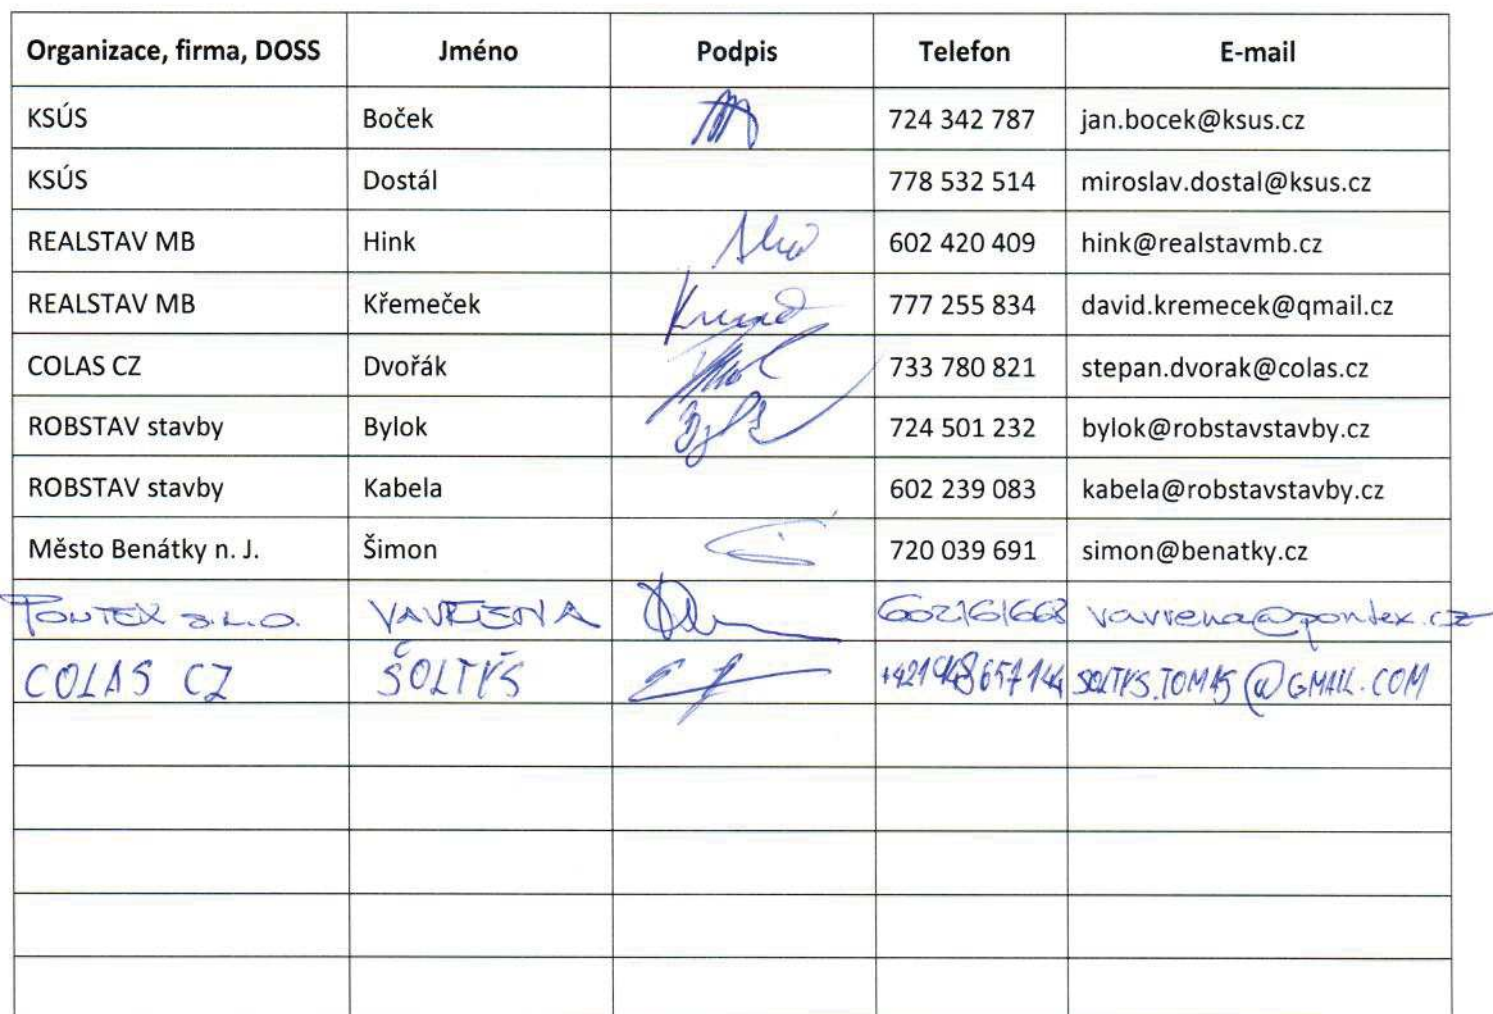 Organizace, firma, DOSS Jméno Podpis Telefon E-mail
KSÚS Boček 724 342 787 jan.bocek@ksus.cz
KSÚS Dostál 778 532 514 miroslav.dostal@ksus.cz
REALSTAV MB Hink 602 420 409 hink@realstavmb.cz
REALSTAV MB Křemeček 777 255 834 david.kremecek@qmail.cz
COLAS CZ Dvořák 733 780 821 stepan.dvorak@colas.cz
ROBSTAV stavby Bylok 724 501 232 bylok@robstavstavby.cz
ROBSTAV stavby Kabela 602 239 083 kabela@robstavstavby.cz
Město Benátky n. J. Šimon 720 039 691 simon@benatky.cz
PONTEX s.r.o. VAVŘENA 602161668 vavrena@pontex.cz
COLAS CZ ŠOLTÝS +421948657144 SOLTYS.TOMAS@GMAIL.COM